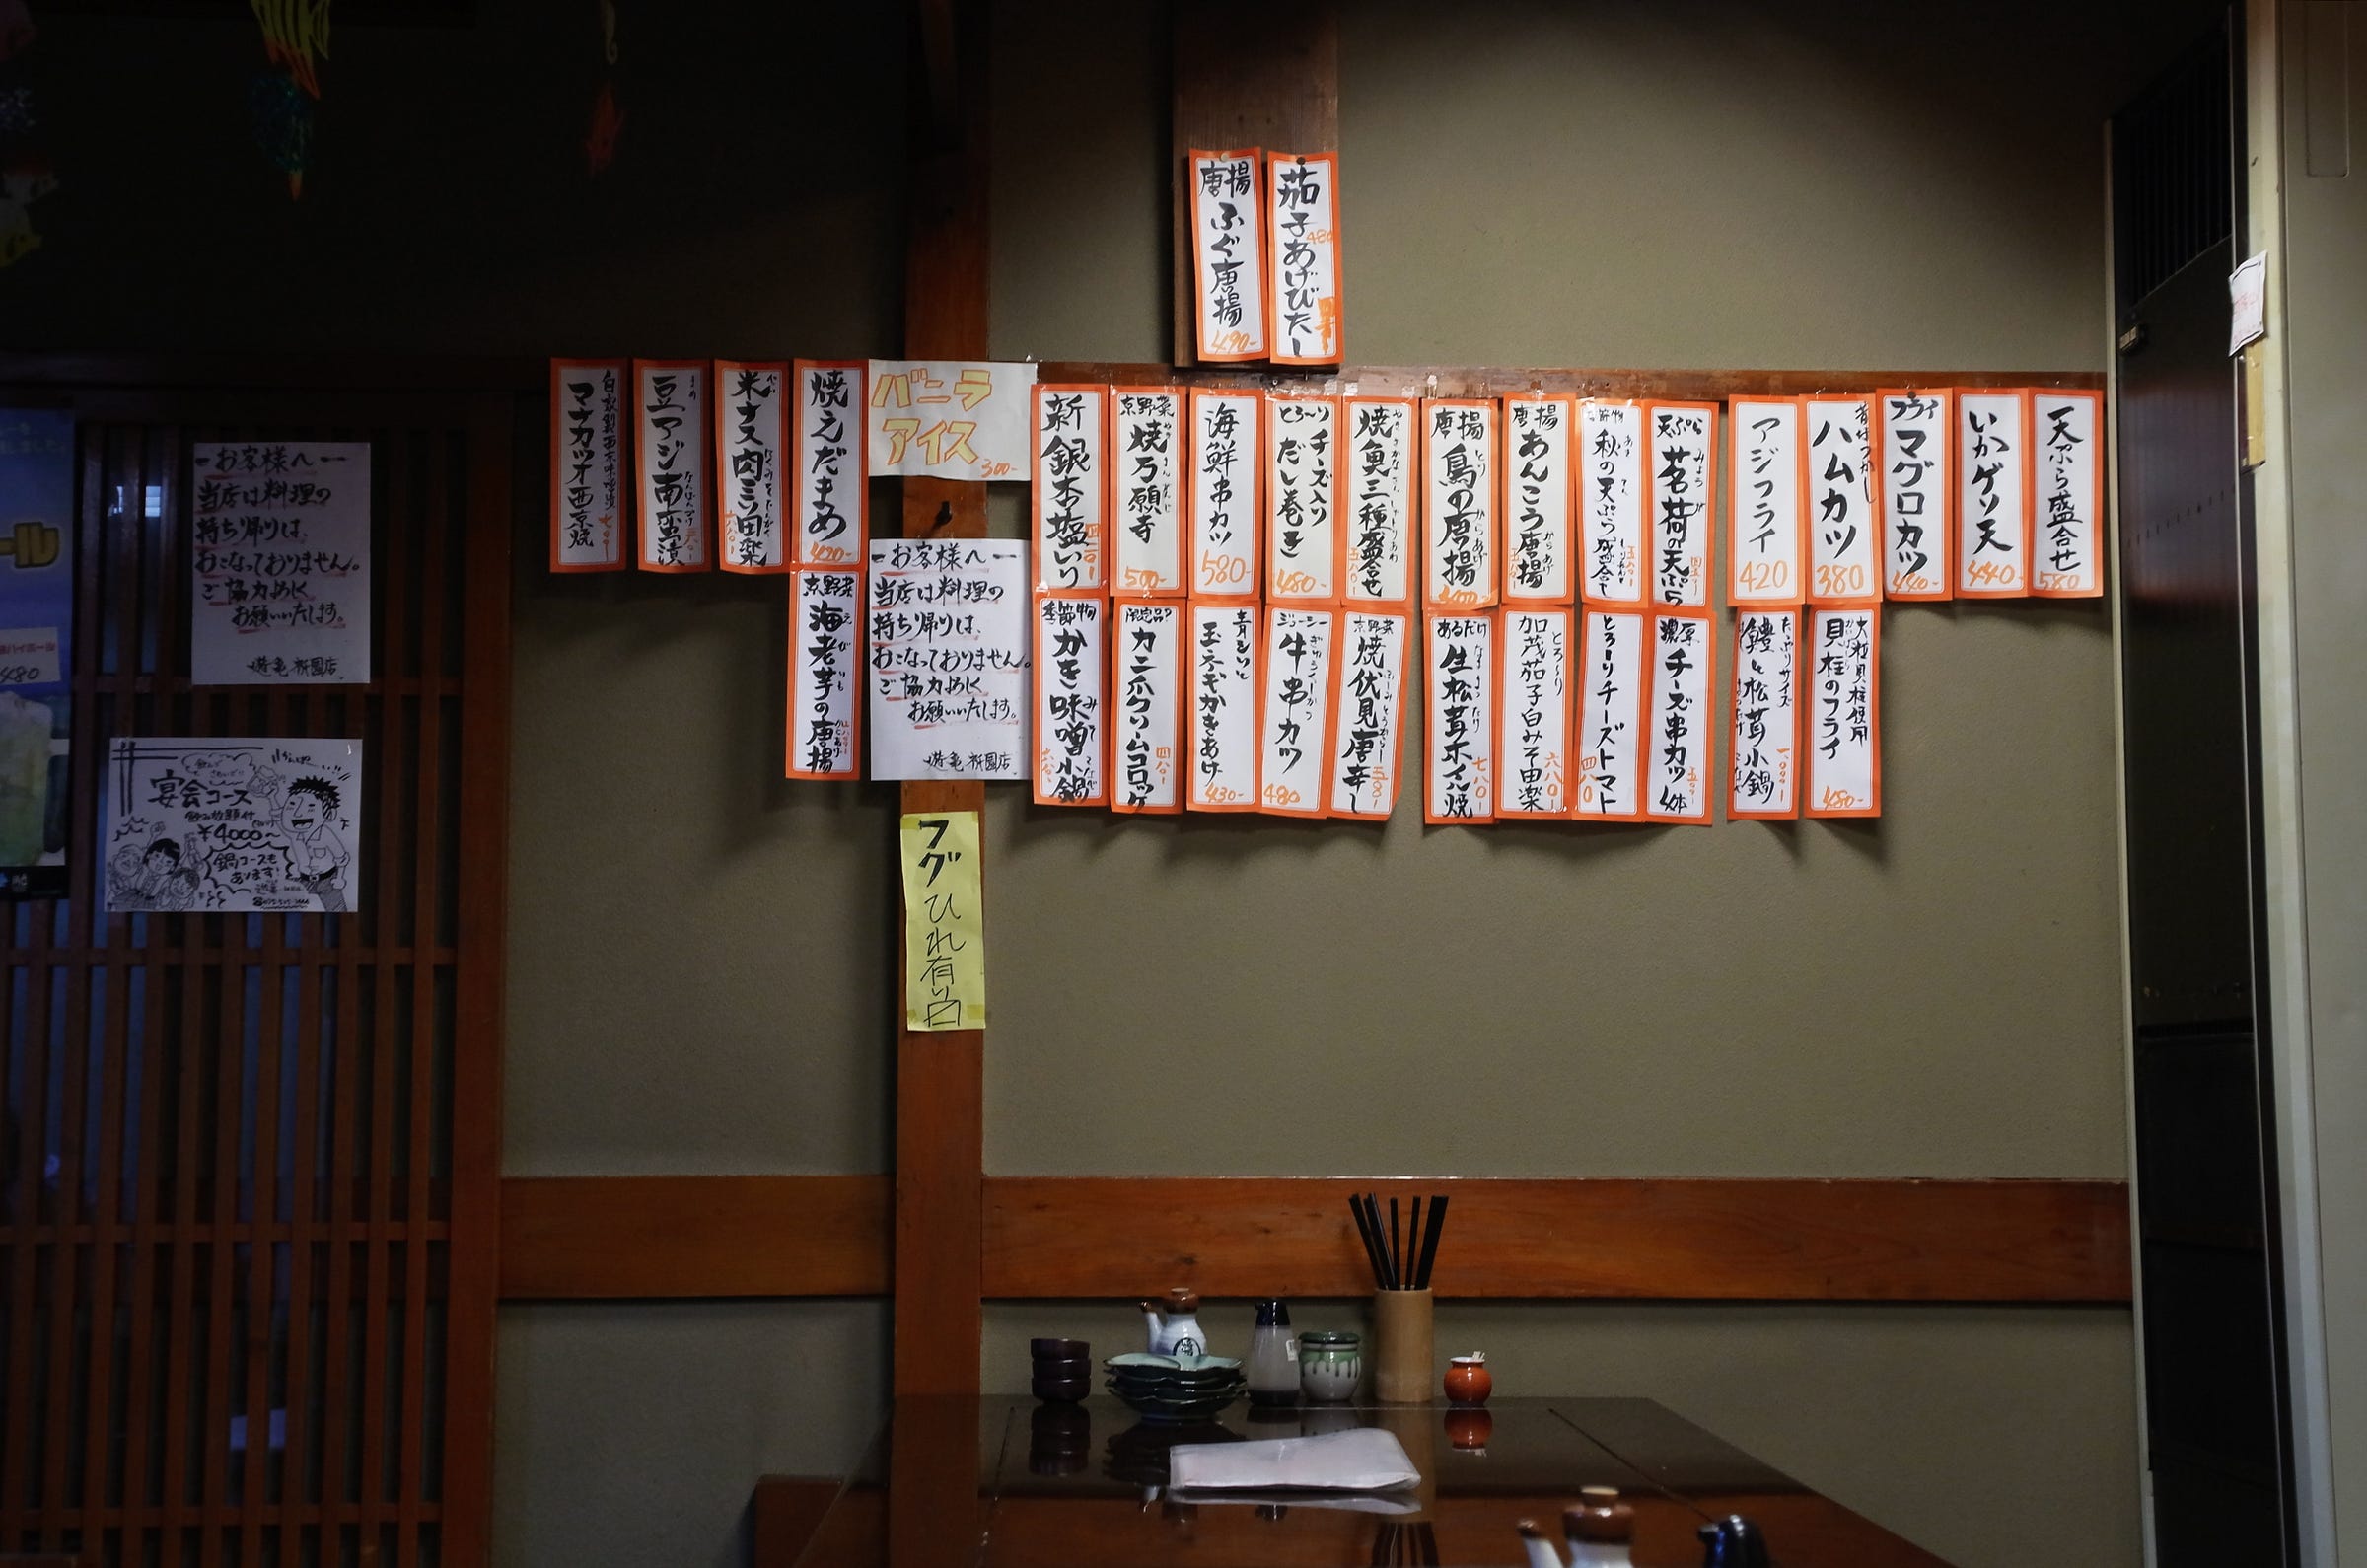 茄子あげびたし
480
唐揚
ふぐ唐揚
490-
天ぷら盛合せ
580
いかゲソ天
440-
フライ
マグロカツ
440-
昔なつかし
ハムカツ
380
アジフライ
420
天ぷら
茗荷の天ぷら
みょうが
秋の天ぷら盛合せ
唐揚
あんこう唐揚
からあげ
唐揚
鳥の唐揚
とり
からあげ
焼魚三種盛合せ
五八〇-
とろ〜りチーズ入り
だし巻き
480-
海鮮串カツ
580-
京野菜
焼万願寺
500-
新銀杏塩いり
バニラ
アイス
300-
焼えだまめ
420-
米ナス肉ミソ田楽
豆アジ南蛮漬
まめ
なんばんづけ
マナカツオ西京焼
大粒貝柱使用
貝柱のフライ
480-
たっぷりサイズ
鱧と松茸小鍋
濃厚
チーズ串カツ
とろーりチーズトマト
四八〇
とろ〜り
加茂茄子白みそ田楽
六八〇-
あるだけ
生松茸ホイル焼
七八〇-
京野菜
焼伏見唐辛し
ジューシー
牛串カツ
480
青じそと
玉ネギかきあげ
430-
限定品
カニ爪クリームコロッケ
四八〇-
季節物
かき味噌小鍋
京野菜
海老芋の唐揚
えびいも
お客様へ
当店は料理の
持ち帰りは、
おこなっておりません。
ご協力めしく
お願いいたします。
遊亀 祇園店
お客様へ
当店は料理の
持ち帰りは、
おこなっておりません。
ご協力めしく
お願いいたします。
遊亀 祇園店
フグひれ有り
宴会コース
飲み放題付
¥4000〜
鍋コースも
あります!
480